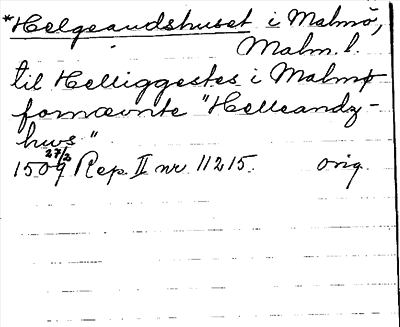 *Helgeandshuset i Malmö,
Malm. l.
til Helliggestes i Malmø
fornævnte "Helleandz-
hws"
27/3
1509 Rep. II nr. 11215. orig.